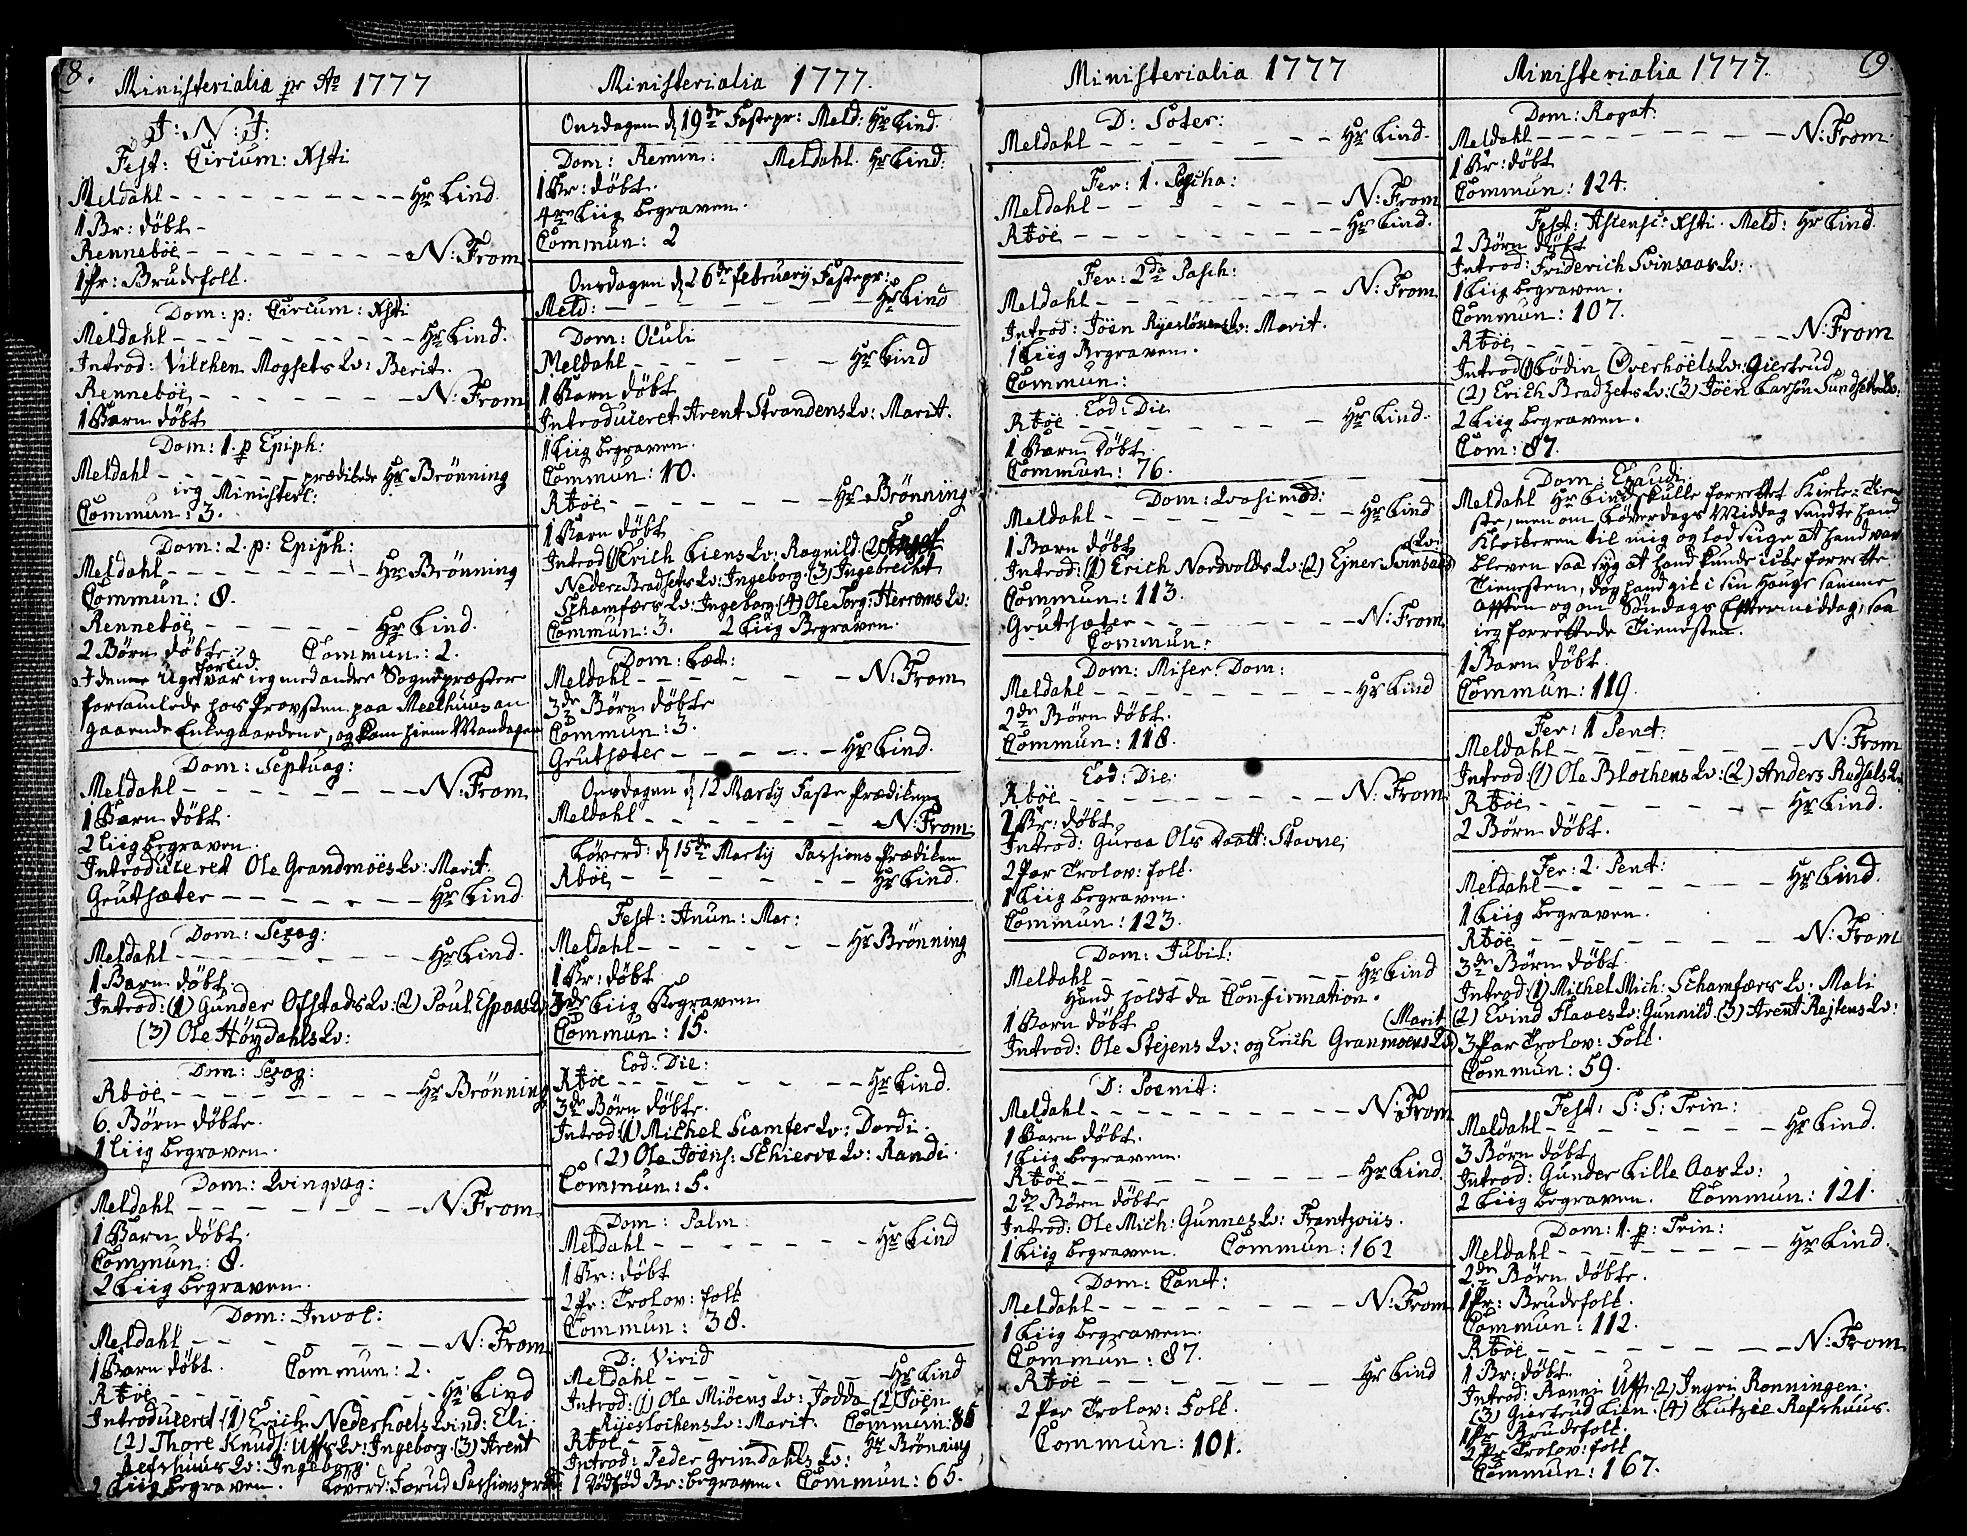 8.
Ministerialia pr Ao 1777
J: N: J:
Fest: Circum: Xsti
Meldahl - - - Hr Lind.
1 Br: døbt -
Renneboe - - - N: From
1 Pr: Brudefolk.
Dom: p: Circum: Xsti
Meldahl - - - Hr Lind.
Introd: Vilchen Mogsets Qv: Berit.
Renneboe, - - - N: From
1 Barn døbt
Dom: 1. p Epiph:
Meldahl - - - prædikede Hr Brønning
ieg Ministerl:
Commun: 3.
Dom: 2. p: Epiph:
Meldahl - - - Hr Brønning
Commun: 8.
Renneboe - - - Hr Lind.
2 Børn døbte. Commun: 2.
I denne Uge forled. var ieg med andre Sognepræster
forsamlede hos Provsten paa Meelhuus an
gaaende Enkegaardene, og kom hiem Mandagen
Dom: Septuag:
Meldahl - - - N: From
1 Barn døbt.
2 Liig begraven.
Introduceret Ole Grandmoes Qv: Marit.
Gruthæter - - - Hr Lind.
Dom: Sexag:
Meldahl - - - Hr Lind.
1 Barn døbt.
Introd: (1) Gunder Ofstads Qv: (2) Poul Espaas Qv
(3) Ole Høydahls Qv:
Dom: Sexag:
Rboe - - - Hr Brønning
6. Børn døbte.
1 Liig begraven.
Dom: Qvinqvag:
Meldahl - - - N: From.
1 Barn døbt.
Commun: 8.
2 Liig begraven.
Dom: Invoc:
Meldahl - - - N: From
1 Barn døbt. Commun: 2.
Rboe - - - Hr Lind
Introduceret (1) Erich Nederhoels Qvind: Eli:
(2) Thore Knuds: Uffs Qv: Ingeborg (3) Arent
Refshuus Qv: Ingeborg:
2 Liig begraven. Løverd: Forud Passions præd:
Ministerialia 1777.
Onsdagen d 19de Fastepr: Meld: Hr Lind.
Dom: Remin: Meldahl. Hr Lind:
1 Br: døbt.
4re Liig begraven.
Commun: 2
Onsdagen d 26de februarij Fastepr:
Meld: - - - Hr Lind
Dom: Oculi
Meldahl - - - Hr Lind
1 Barn døbt
Introduceret Arent Strandens Qv: Marit.
1 Liig begraven.
Commun: 10.
Rboe - - - Hr Brønning
1 Barn døbt
Introd: (1) Erich Liens Qv: Ragnild. (2)
Neder Bradsets Qv: Ingeborg. (3) Ingebrecht
Schamfærs Qv: Ingeborg (4) Ole Torg: Herroms Qv:
Commun: 3. 2 Liig Begraven.
Dom: Læt:
Meldahl - - - N: From
3de Børn døbte
Commun: 3.
Gruthæter - - - Hr Lind.
Onsdagen d 12 Martij Faste Prædiken
Meldahl - - - N: From:
Løverd: d 15de Martij Passions Prædiken
Rboe, - - - Hr Lind.
Fest: Anun: Mar:
Meldahl - - - Hr Brønning
1 Br: døbt
3de Liig Begraven
Commun: 15.
Eod: Die:
Rboe - - - Hr Lind.
3de Børn døbte.
Introd: (1) Michel Scamfer Qv: Dordi.
(2) Ole Joens: Schierve Qv: Randi.
Commun: 5.
Dom: Palm:
Meldahl - - - Hr Lind
1 Br: døbt
2 Pr: Trolov: folk
Commun: 38.
D: Virid
Meldahl - - - Hr Lind
Introd: (1) Ole Mioens Qv: Jodda (2) Joen
Ryeslochens Qv: Marit. Commun: 86
Rboe - - - Hr Brønning
Introd: Peder Grindahls Qv:
1 Dødfød Br: begraven. Commun: 65.
Ministerialia 1777
D: Soter:
Meldahl - - - Hr Lind.
Fer: 1. Pascha:
Meldahl - - - N: From
Rboe - - - Hr Lind.
Fer: 2da Pasch:
Meldahl - - - N: From
Introd: Joen Ryeslønens Qv: Marit.
1 Liig Begraven.
Commun:
Rboe Eod: Die - - - Hr Lind.
1 Barn døbt.
Commun: 76.
Dom: Qvasimod:
Meldahl - - - Hr Lind
1 Barn døbt
Introd: (1) Erich Nordvolds Qv: (2) Ejner Svinsaas Qv:
Commun: 113.
Gruthæter - - - N: From
Commun:
Dom: Miser. Dom:
Meldahl - - - Hr Lind
2de Børn døbt.
Commun: 118.
Eod: Die:
Rboe - - - N: From
1 Br: døbt
Introd: Guroa Ols Daatt: Stavne,
2 Par Trolov: folk.
1 Liig begraven.
Commun: 123.
Dom: Jubil:
Meldahl - - - Hr Lind
Hand holdt da Confirmation.
1 Barn døbt (Marit
Introd: Ole Stejens Qv: og Erich Granmoens Qv)
D: Poenit:
Meldahl - - - N: From
1 Barn døbt.
1 Liig begraven.
Rboe - - - Hr Lind
2de Børn døbte
Introd: Ole Mich: Gunnes Qv: Frentzviis.
1 Liig begraven. Commun: 162
Dom: Cant:
Meldahl - - - N: From
1 Liig begraven.
Commun: 87.
Rboe - - - Hr Lind
2 Par Trolov: Folk.
Commun: 101.
Ministerialia 1777.
9.
Dom: Rogat:
Meldahl - - - N: From:
1 Br: døbt
Commun: 124.
Fest: Ascensc: Xsti. Meld: Hr Lind.
2 Børn døbt
Introd: Friderich Svinsaas Qv:.
1 Liig begraven.
Commun: 107.
Rboe - - - N: From
Introd (1) Lodin Overhoels Qv: Giertrud
(2) Erich Bradzets Qv: (3) Joen Larsøn Sundsets Qv:
2 Liig begraven.
Com: 87.
Dom: Exaudi:
Meldahl Hr Lind skulle forrettet Kirke-Tiene
ste, men om Løverdags Middag sendte hand
Klokeren til mig og lod sige at hand var
bleven saa syg at hand kunde icke forrette
Tienesten, dog hand gik i sin Hauge samme
Afften og om Søndags Eftermiddag, saa
ieg forrettede Tienesten.
1 Barn døbt.
Commun: 119.
Fer: 1 Pent:
Meldahl - - - N: From
Introd: (1) Ole Blochens Qv: (2) Anders Redsets Qv
Rboe - - - Hr Lind.
2 Børn døbt.
Fer: 2. Pent:
Meldahl - - - Hr Lind.
1 Liig begraven.
Rboe - - - N: From
3de Børn døbt.
Introd: (1) Michel Mich: Schamfærs Qv: Mali
(2) Evind Flaaes Qv: Gunnild (3) Arent Rejtens Qv:
3 Par Trolov: Folk.
Commun: 59.
Fest: S: S: Trin:
Meldahl - - - Hr Lind.
3 Børn døbt
Introd: Gunder Lille Aas Qv:
2 Liig begraven. Commun: 121.
Dom: 1. p: Trin:
Meldahl - - - Hr Lind.
2de Børn døbte.
1 Pr: Brudefolk.
Commun: 112.
Rboe - - - N: From
1 Br: døbt.
Introd: Ranni Uff: (2) Ingri Ronningen.
(3) Giertrud Lien. (4) Lutzie Refshuus.
1 Pr Brudefolk.
2 Pr Trolov: folk
Commun: 167.